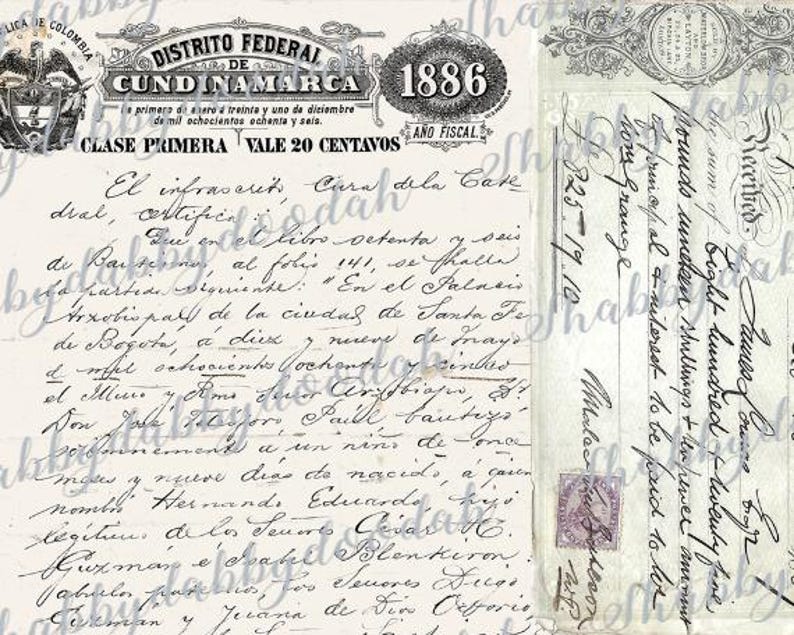 REPUBLICA DE COLOMBIA
DISTRITO FEDERAL
DE
CUNDINAMARCA
1886
primero de enero á treinta y uno de diciembre
de mil ochocientos ochenta y seis.
AÑO FISCAL.
CLASE PRIMERA VALE 20 CENTAVOS
El infrascrito, Cura de la Cate-
dral, certifica:
Que en el libro ochenta y seis
de Bautismos, al folio 141, se halla
la partida siguiente: "En el Palacio
Arzobispal de la ciudad de Santa Fe
de Bogotá, á diez y nueve de mayo
de mil ochocientos ochenta y cinco
el Illmo y Rmo Señor Arzobispo, Dr
Don José Telesforo Paúl, bautizó
solemnemente á un niño de once
meses y nueve días de nacido, á quien
nombró Hernando Eduardo, hijo
legítimo de los Señores César C.
Guzmán é Isabel Blenkiron:
abuelos paternos, los Señores Diego
Guzmán y Juana de Dios Osorio,
Received
James
the sum of Eight hundred & twenty five
pounds nineteen shillings & ten pence amount
of principal & interest to be paid to
Lon Grange
£825-19.10
shabbydoodah